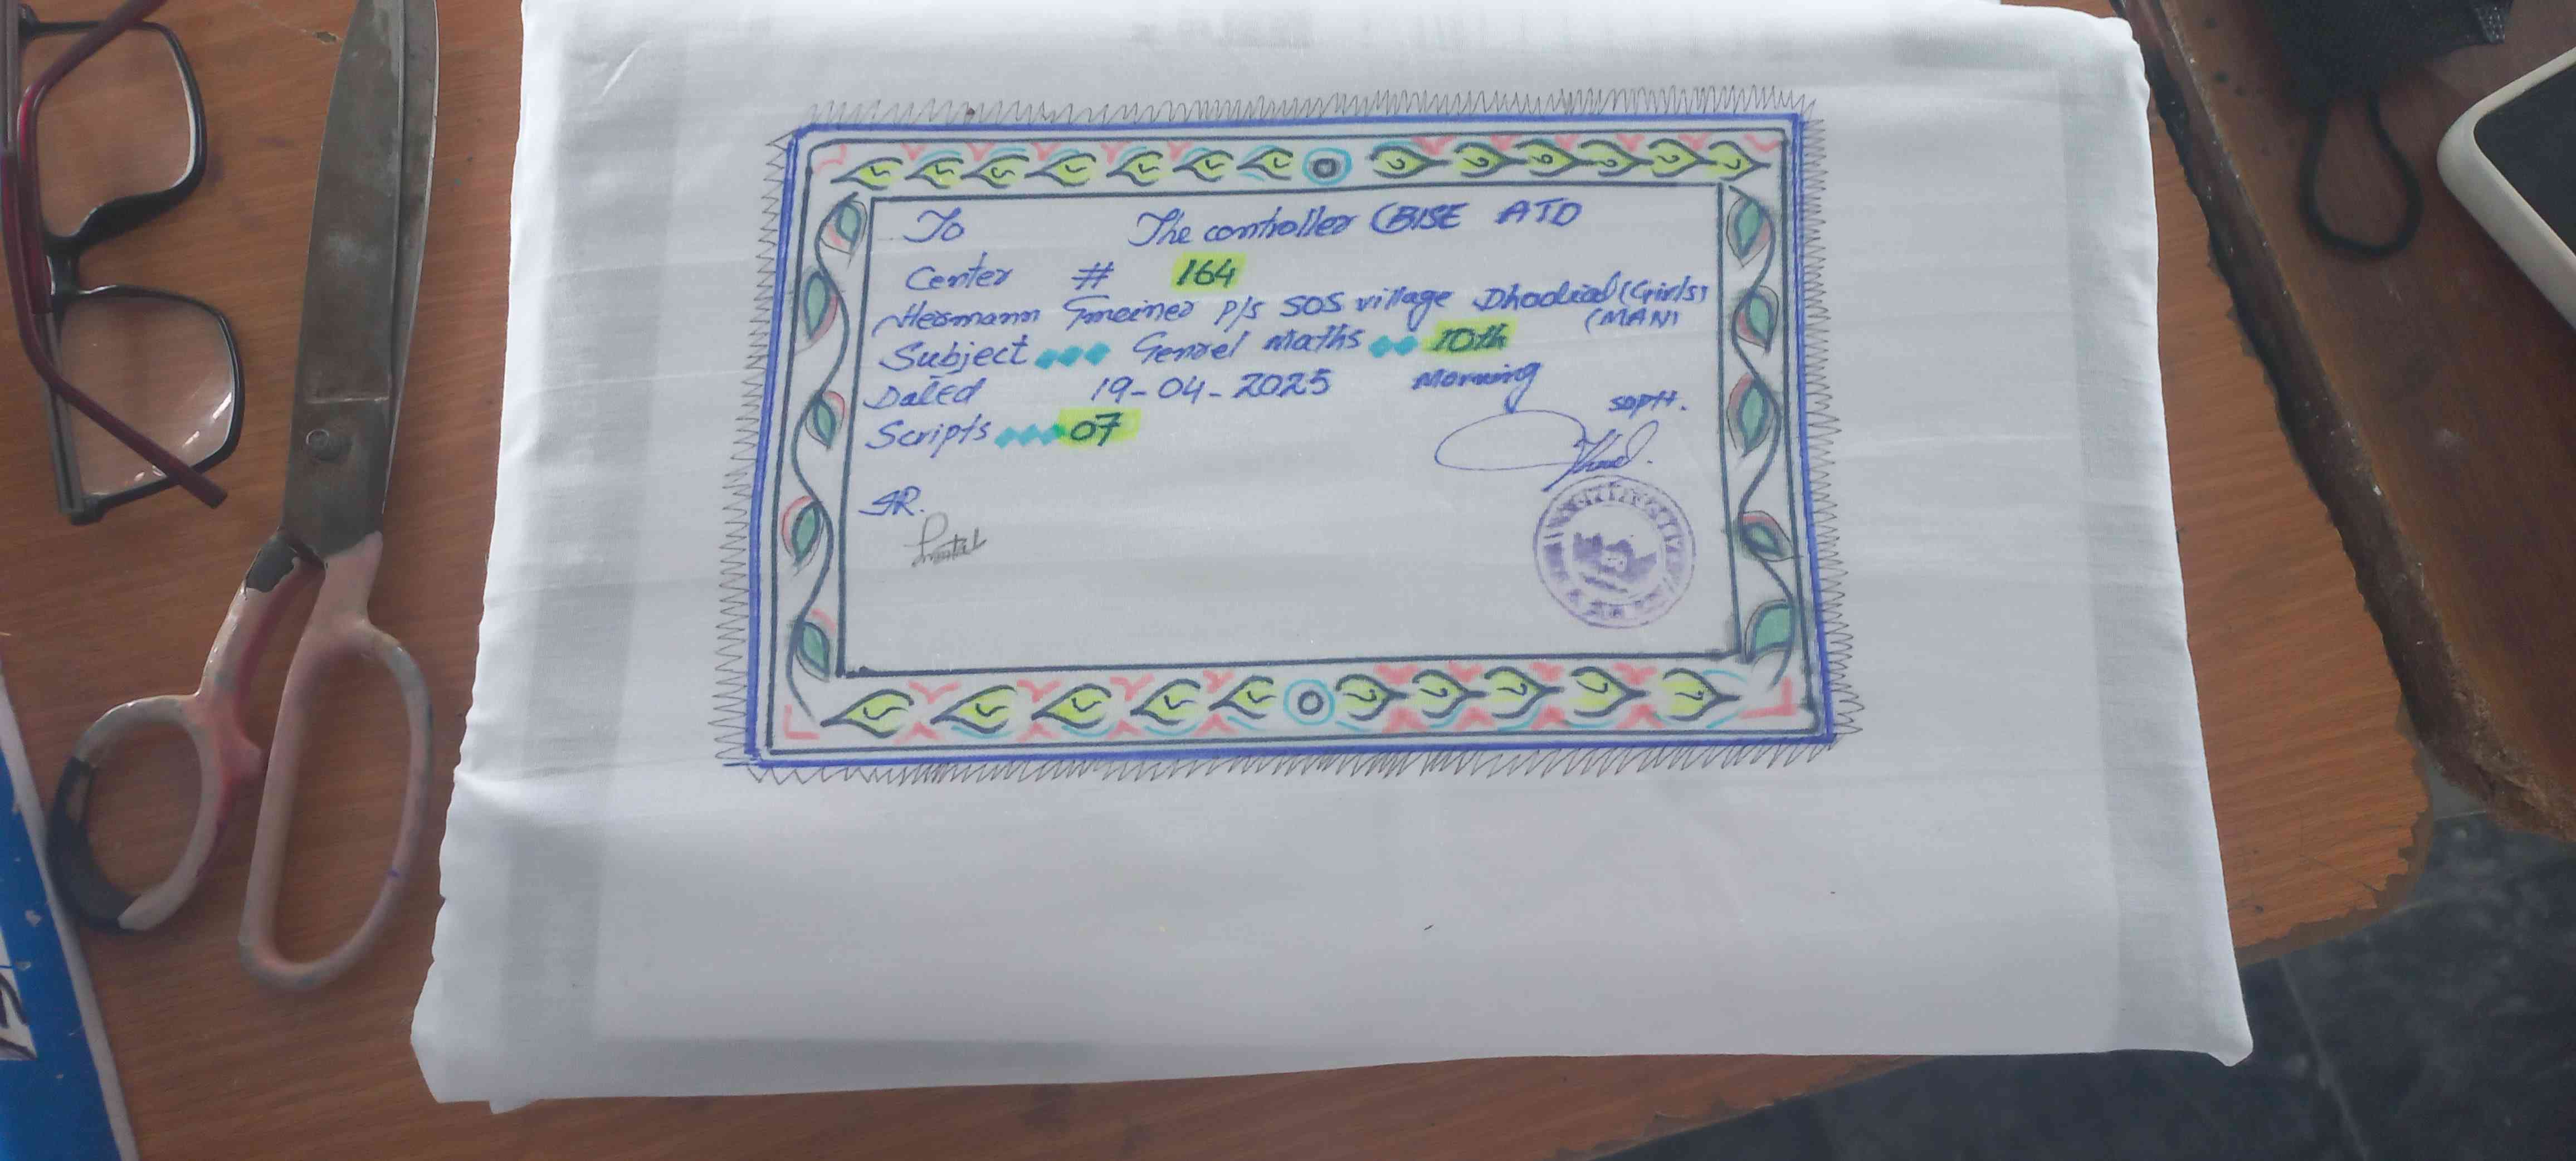 To The controller BISE ATD
Center # 164
Hermann Gmeiner P/S SOS village Dhodial (Girls)
(MAN)
Subject Genrel Maths 10th
Dated 19-04-2025 Morning
Scripts 07
Suptt.